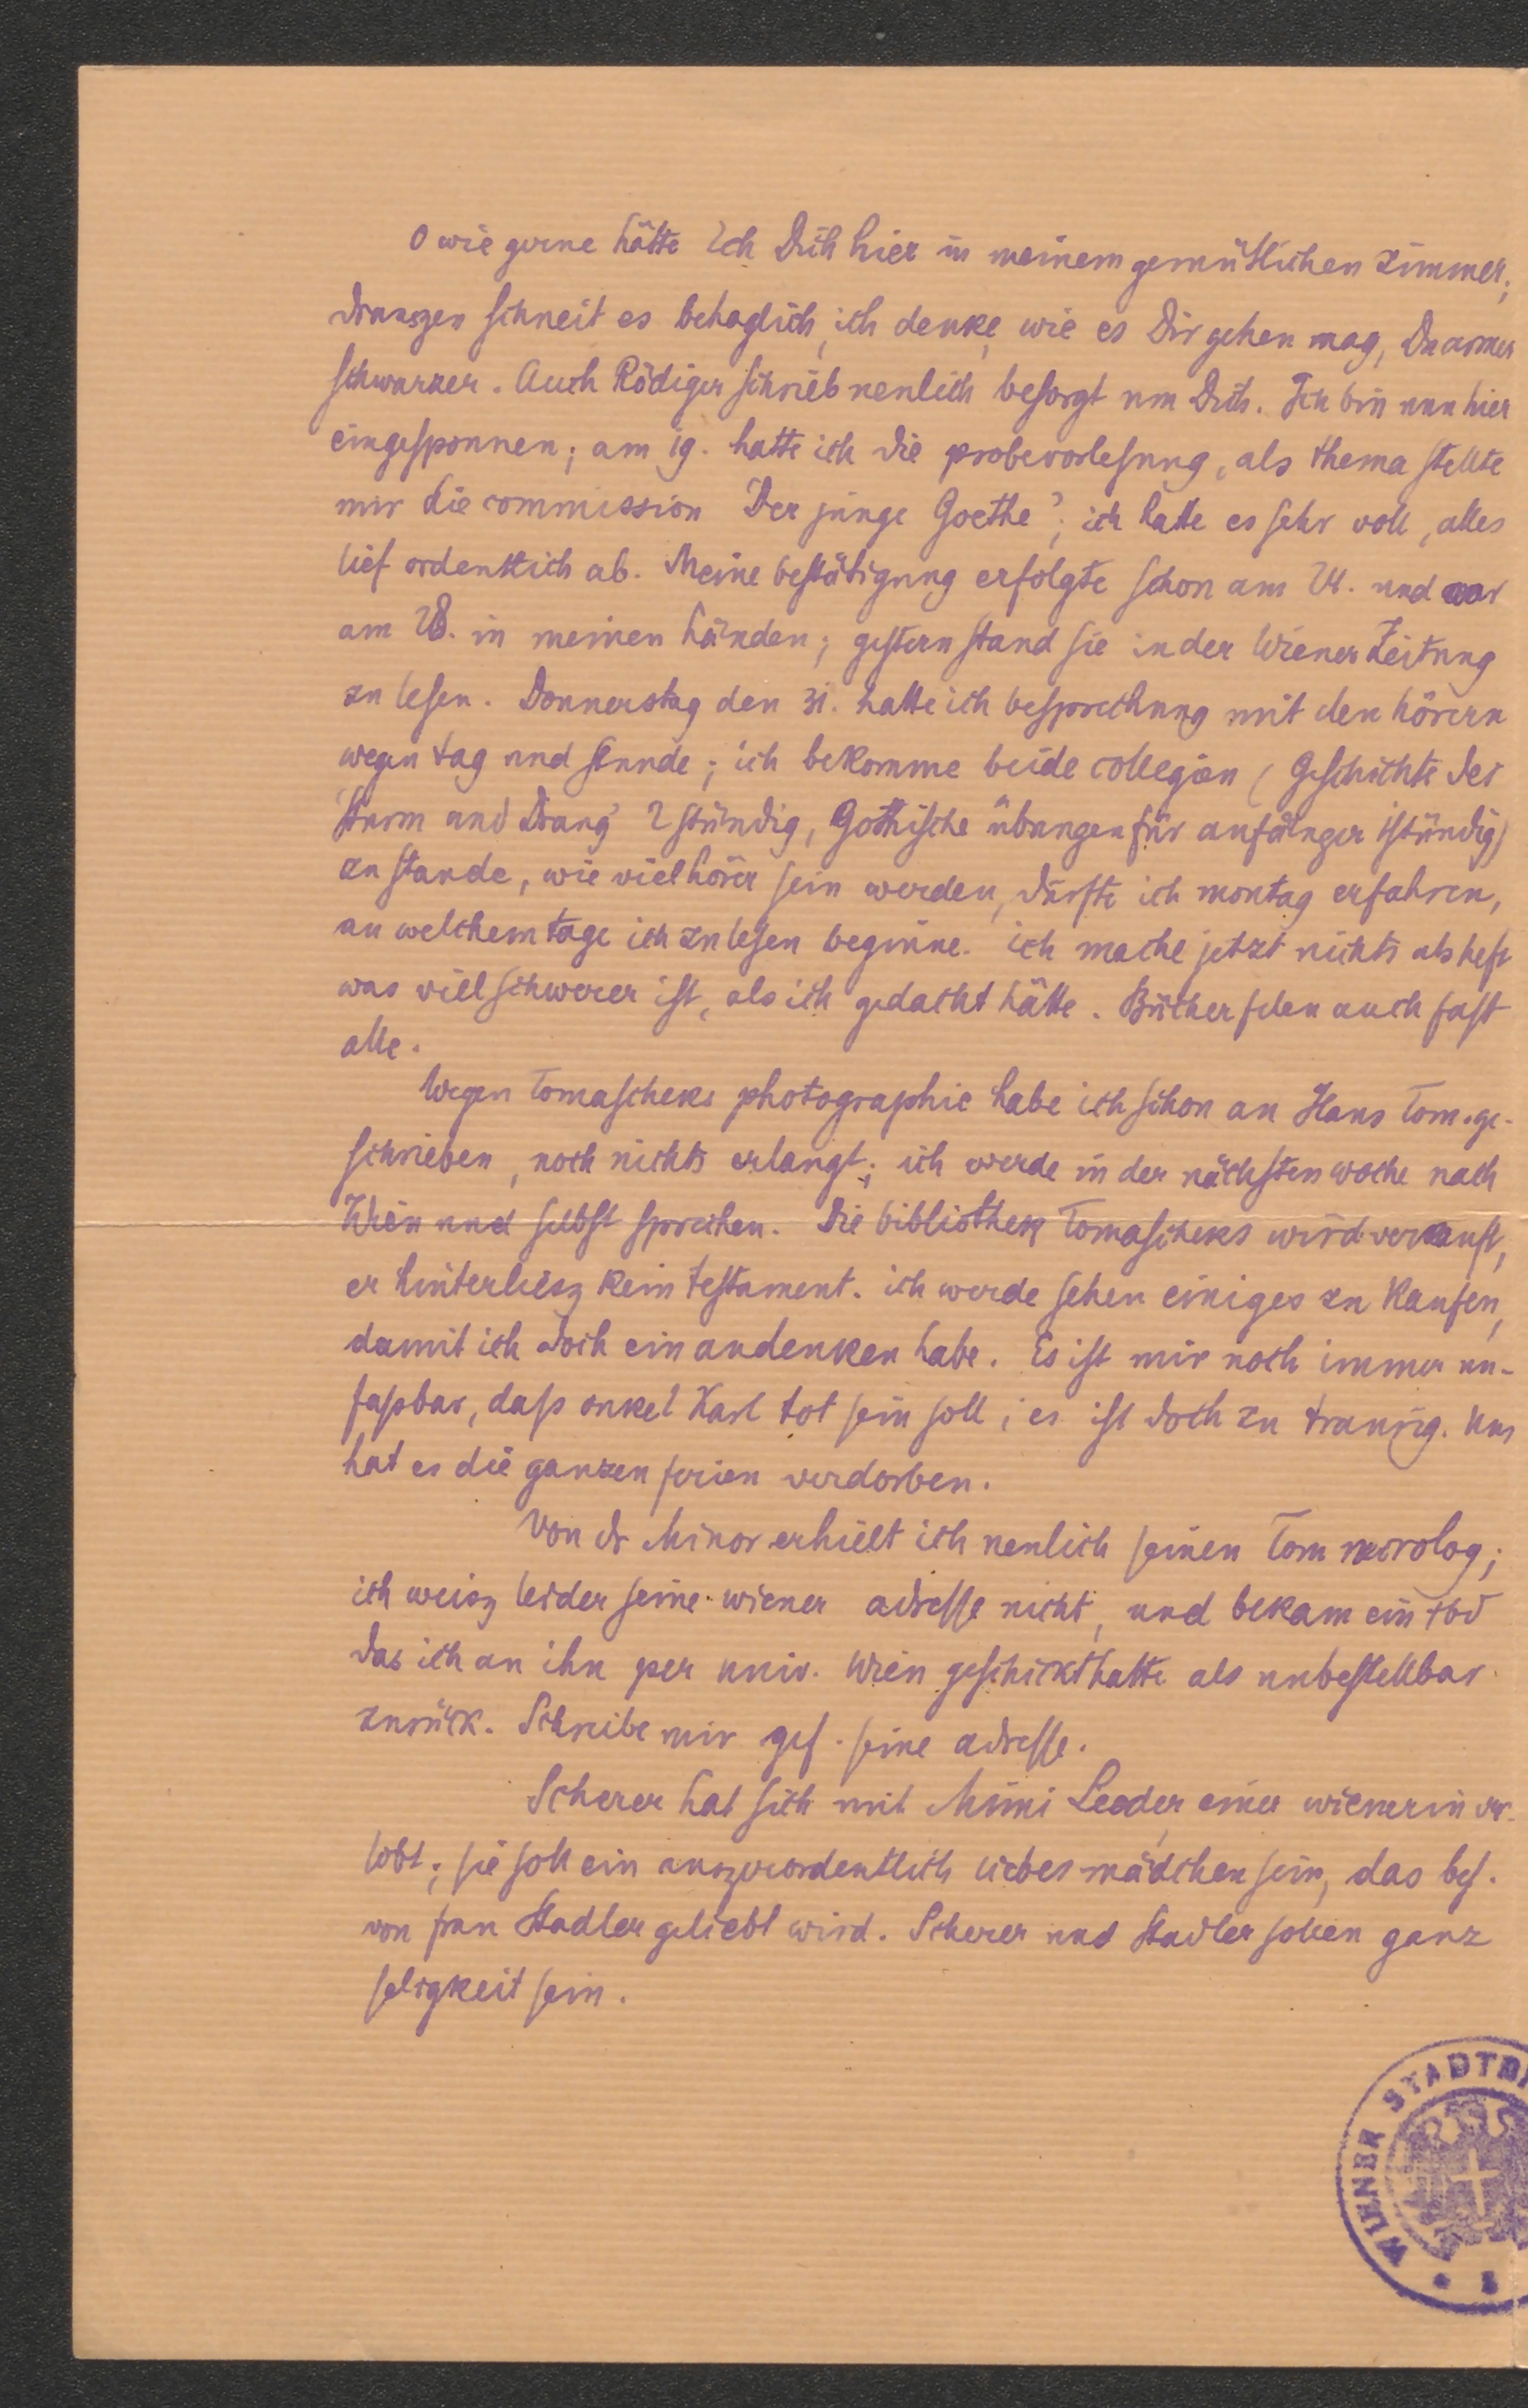 O wie gerne hätte ich Dich hier in meinem gemütlichen zimmer,
drauszen schneit es behaglich, ich denke, wie es Dir gehen mag, Du armer
schwarzer. Auch Rödiger schrieb neulich besorgt um Dich. Ich bin nun hier
eingesponnen; am 19. hatte ich die probevorlesung, als thema stellte
mir die commission 'Der junge Goethe'; ich hatte es sehr voll, alles
lief ordentlich ab. Meine bestätigung erfolgte schon am 24. und war
am 28. in meinen händen; gestern stand sie in der Wiener Zeitung
zu lesen. Donnerstag den 31. hatte ich besprechung mit den hörern
wegen tag und stunde; ich bekomme beide collegien (Geschichte des
'Sturm und Drang' 2 stündig, Gothische übungen für anfänger 1stündig)
zu stande, wie viel hörer sein werden, dürfte ich montag erfahren,
an welchem tage ich zu lesen beginne. ich mache jetzt nichts als heft
was viel schwerer ist, als ich gedacht hätte. Bücher felen auch fast
alle.
Wegen Tomascheks photographie habe ich schon an Hans Tom. ge-
schrieben, noch nichts erlangt; ich werde in der nächsten woche nach
Wien und selbst sprechen. Die bibliothek Tomascheks wird verkauft,
er hinterliesz kein testament. ich werde sehen einiges zu kaufen,
damit ich doch ein andenken habe. Es ist mir noch immer un-
fassbar, dass onkel Karl tot sein soll; es ist doch zu traurig. Uns
hat es die ganzen ferien verdorben.
Von dr Minor erhielt ich neulich seinen Tom necrolog;
ich weisz leider seine wiener adresse nicht, und bekam ein
das ich an ihn per univ. Wien geschickt hatte als unbestellbar
zurück. Schreibe mir gef. seine adresse.
Scherer hat sich mit Mimi Leeder, einer wienerin ver-
lobt; sie soll ein auszerordentlich liebes mädchen sein, das bes.
von frau Stadler geliebt wird. Scherer und Stadler sollen ganz
seligkeit sein.
WIENER STADTBI